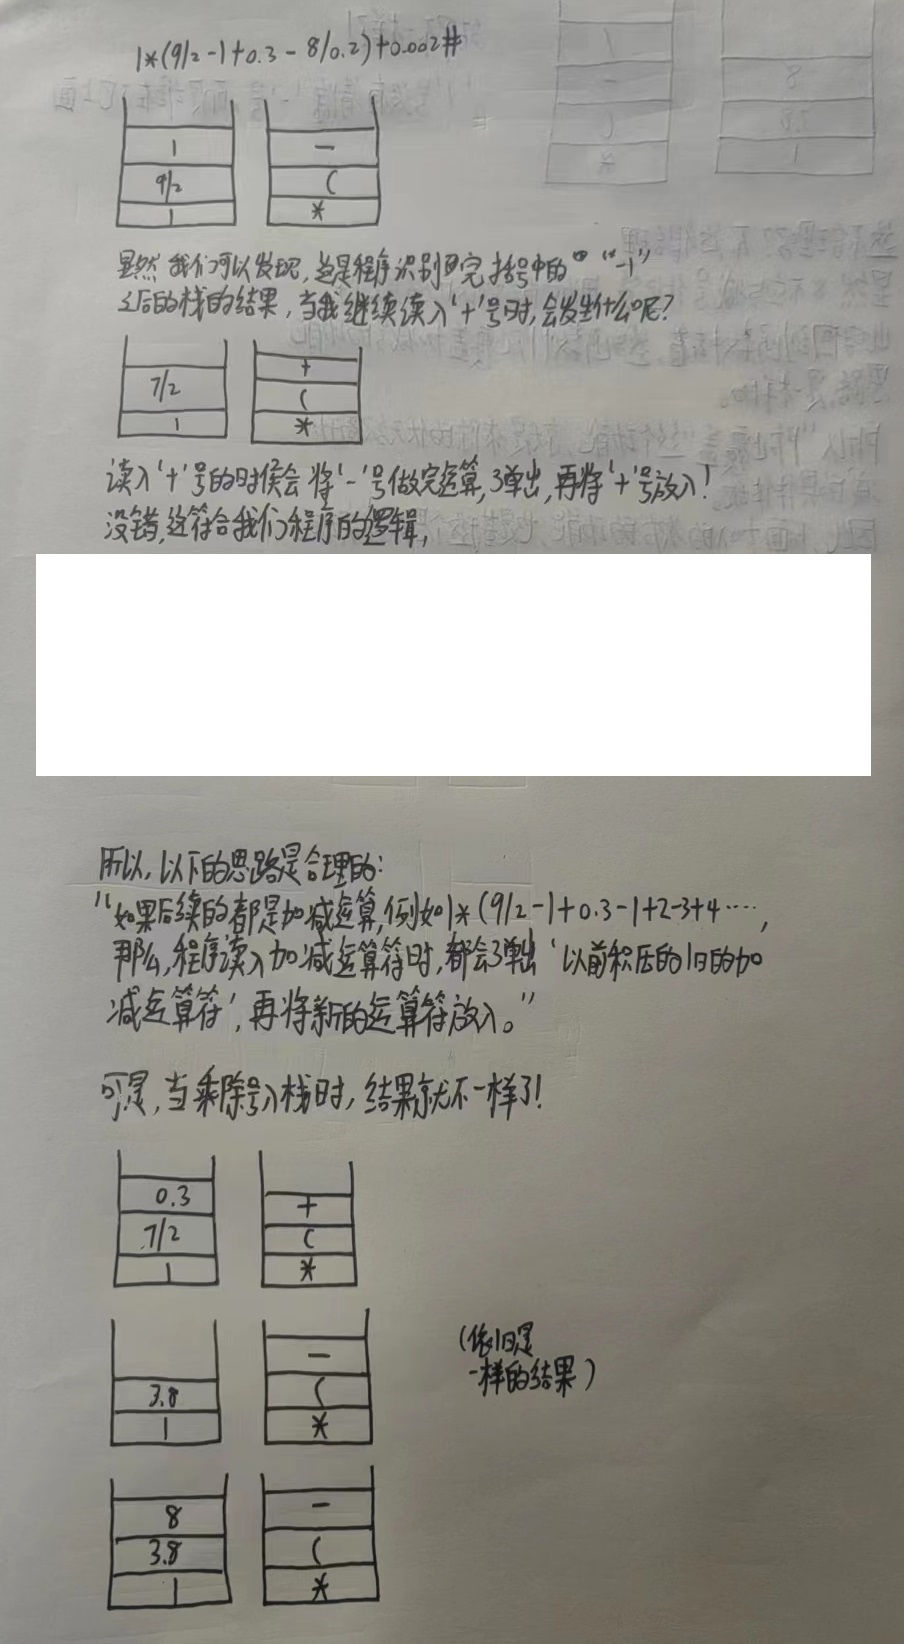 1*(9/2-1+0.3-8/0.2)+0.002#
1 -
9/2 (
1 *
显然 我们可以发现，这是程序识别完 括号中的 “-1”
之后的栈的结果，当我继续读入‘+’号时，会发生什么呢？
+
7/2 (
1 *
读入‘+’号的时候会将‘-’号做完运算，弹出，再将‘+’号放入！
没错，这符合我们程序的逻辑，
所以，以下的思路是合理的：
“如果后续的都是加减运算，例如1*(9/2-1+0.3-1+2-3+4……，
那么，程序读入加减运算符时，都会弹出‘以前积压的旧的加
减运算符’，再将新的运算符放入。”
可是，当乘除号入栈时，结果就不一样了！
0.3 +
7/2 (
1 *
-
3.8 (
1 *
（依旧是
一样的结果）
8 -
3.8 (
1 *